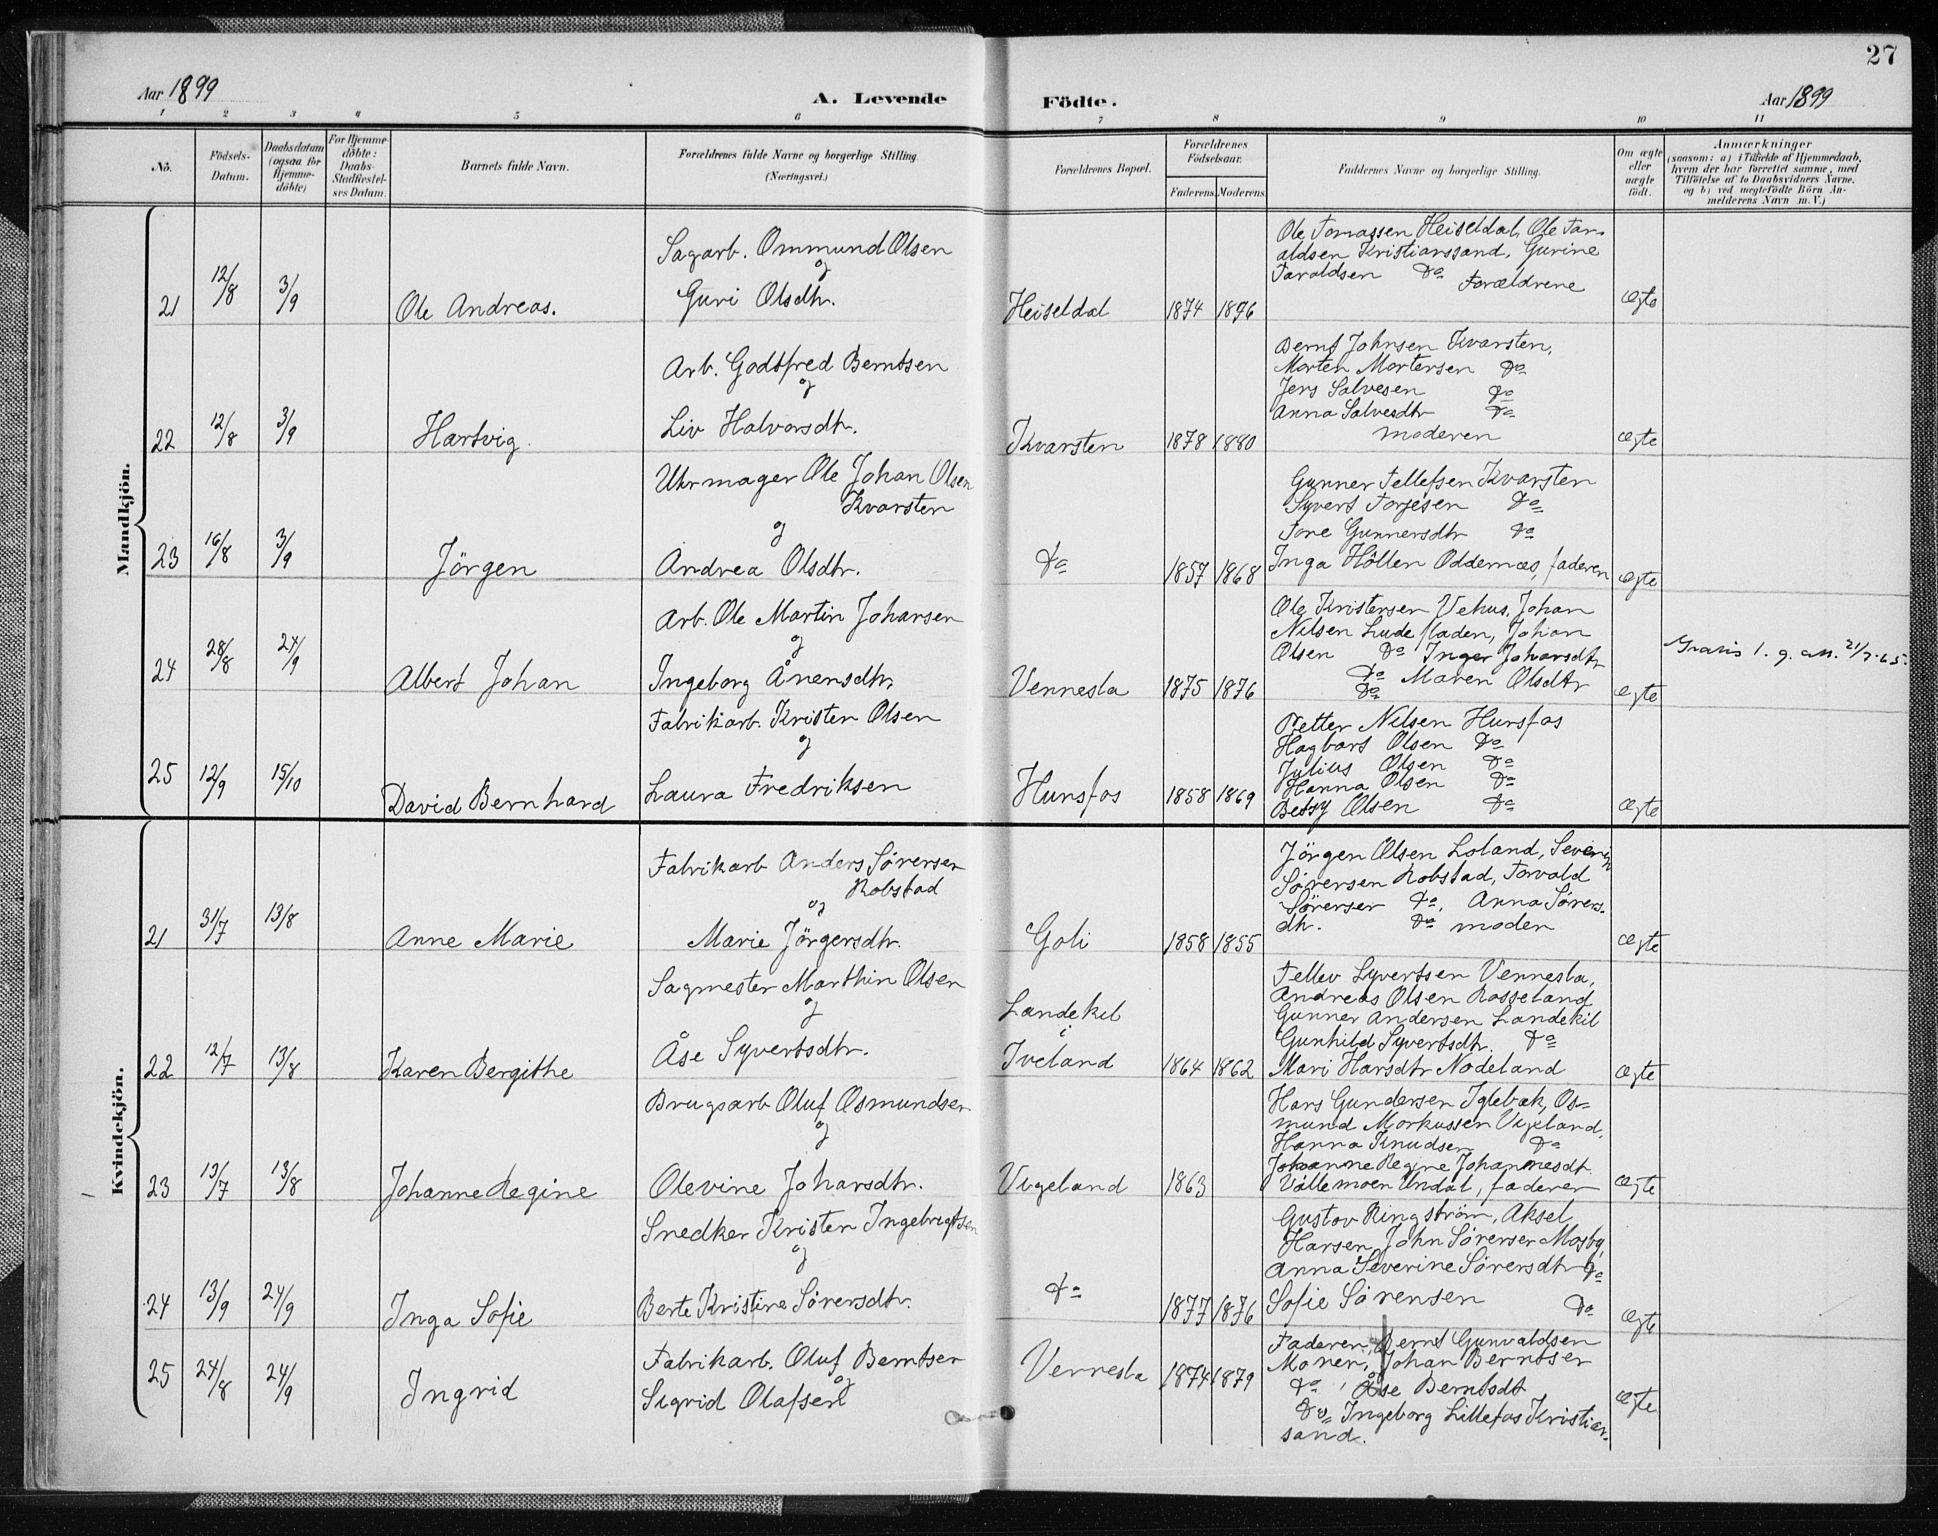 27
Aar 1899
A. Levende
Födte.
Aar 1899
1 2 3 4 5 6 7 8 9 10 11
No.
Födsels-Datum.
Daabsdatum (ogsaa for Hjemme-döbte)
For Hjemme-döbte: Daabs-Stadfæstel-ses Datum.
Barnets fulde Navn.
Forældrenes fulde Navne og borgerlige Stilling. (Næringsvei.)
Forældrenes Bopæl.
Forældrenes Födselsaar.
Faderens. Moderens.
Faddernes Navne og borgerlige Stilling.
Om ægte eller uægte födt.
Anmærkninger
(saasom: a) i Tilfælde af Hjemmedaab,
hvem der har forrettet samme, med
Tilföielse af to Daabsvidners Navne.
og b) ved uægtefödte Börn An-
melderens Navn m. V.)
Mandkjön.
21
12/8
3/9
Ole Andreas.
Sagarb. Ommund Olsen
og
Guri Olsdtr.
Heiseldal
1874 1876
Ole Tomassen Heiseldal, Ole Tar-
aldsen Kristianssand, Gurine
Taraldsen do Forældrene
Ægte
22
12/8
3/9
Hartvig.
Arb. Godtfred Berntsen
og
Liv Halvorsdtr.
Kvarsten
1878 1880
Bernt Johnsen Kvarsten,
Morten Mortensen do
Jens Salvesen do
Anna Salvesdtr do
moderen
Ægte
23
16/8
3/9
Jörgen
Uhrmager Ole Johan Olsen
Kvarsten
og
Andrea Olsdtr.
do
1857 1868
Gunner Tellefsen Kvarsten
Syvert Torjesen do
Tone Gunnersdtr do
Inga Hölten Oddernæs, faderen
Ægte
24
28/8
24/9
Albert Johan
Arb. Ole Martin Johansen
og
Ingeborg Ånensdtr.
Vennesla
1875 1876
Ole Kristensen Vehus, Johan
Nilsen Ludefladen, Johan
Olsen do Inger Johansdtr
do Maren Olsdtr
do
Ægte
Gratis 1. g. att. 21/7-65.
25
12/9
15/10
David Bernhard
Fabrikarb. Kristen Olsen
og
Laura Fredriksen
Hunsfos
1858 1869
Petter Nilsen Hunsfos
Hagbart Olsen do
Julius Olsen do
Hanna Olsen do
Betsy Olsen do
Ægte
Kvindekjön.
21
31/7
13/8
Anne Marie
Fabrikarb Anders Sörensen
Robstad
og
Marie Jörgensdtr.
Goli
1858 1855
Jörgen Olsen Loland, Severin
Sörensen Robstad, Torvald
Sörensen do, Anna Sörens-
dtr. do moden
Ægte
22
12/7
13/8
Karen Bergithe
Sagmester Marthin Olsen
og
Åse Syvertsdtr.
Landekil
i
Iveland
1864 1862
Tellev Syvertsen Vennesla,
Andreas Olsen Rosseland
Gunner Andersen Landekil
Gunhild Syvertsdtr. do
Mari Hansdtr Nodeland
Ægte
23
13/8
Johanne Regine
Brugsarb Oluf Osmundsen
og
Olevine Johansdtr.
Vigeland
1863
Hans Gundersen Iglebæk, Os-
mund Markussen Vigeland,
Hanna Knudsen do
Johanne Regine Johannesdt.
Vallemoen Undal, faderen
Ægte
24
13/9
24/9
Inga Sofie
Snedker Kristen Ingebrigtsen
og
Berte Kristine Sörensdtr.
do
1877 1876
Gustav Ringström, Aksel
Hansen, John Sörensen Mosby,
Anna Severine Sörensdtr do
Sofie Sörensen do
Ægte
25
24/8
24/9
Ingrid
Fabrikarb. Oluf Berntsen
og
Sigrid Olafsen
Vennesla
1874 1879
Faderen, Bernt Gunvaldsen
Moner, Johan Berntsen
do, Åse Berntsdt
do, Ingeborg Lillefos Kristian-
sand.
Ægte